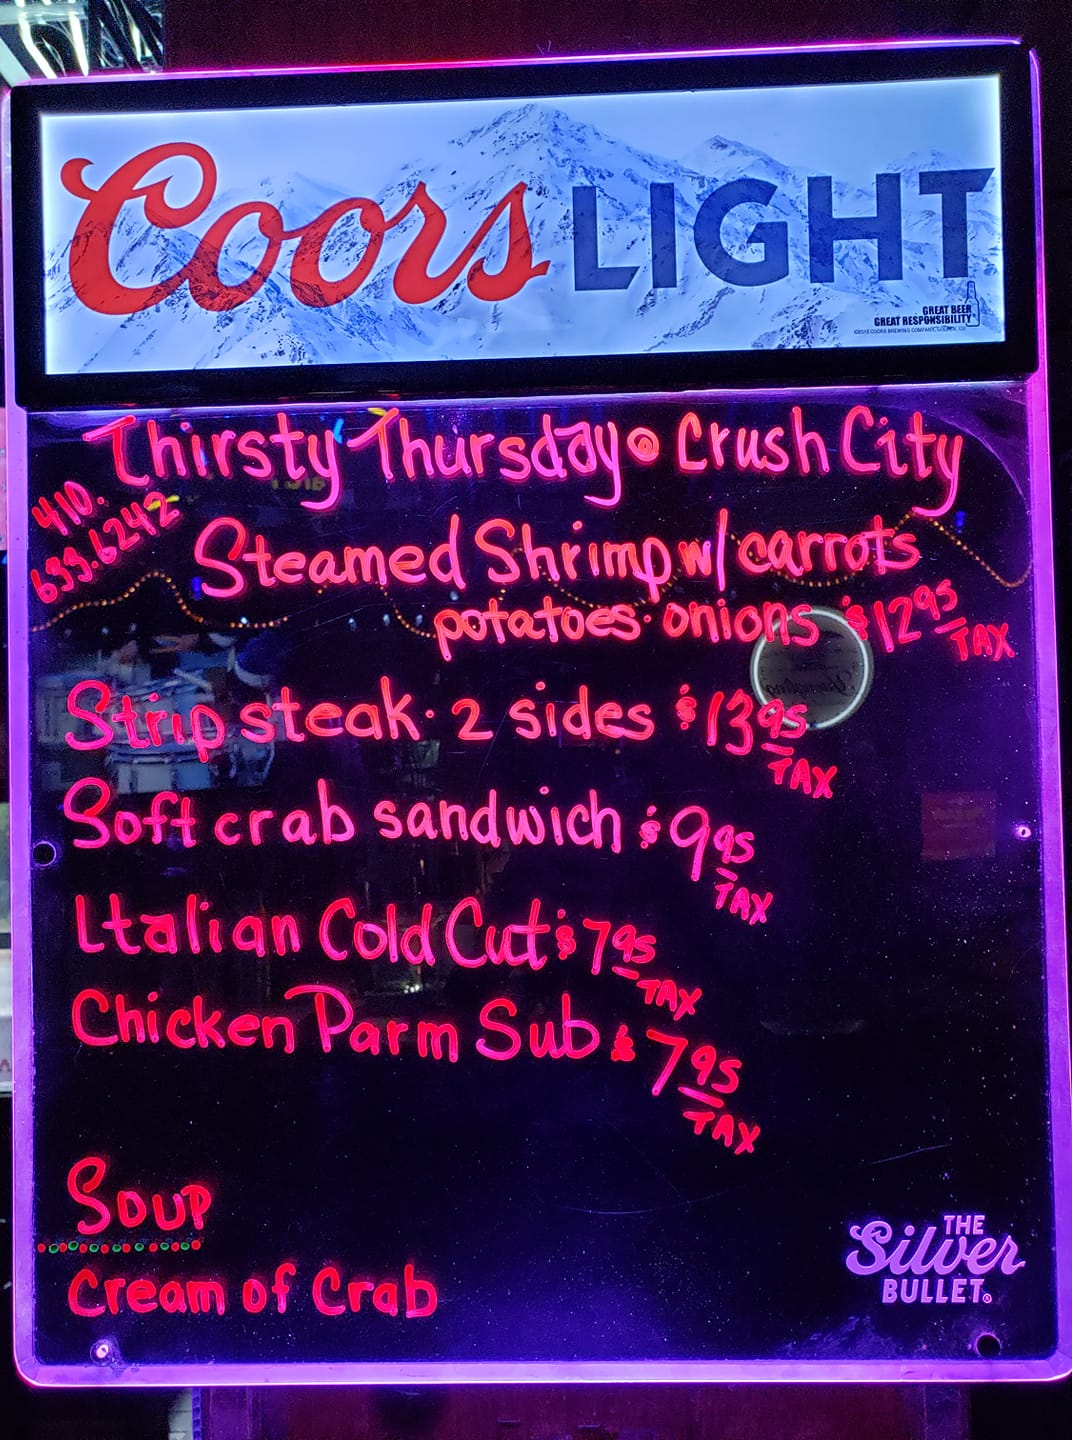 Coors LIGHT
GREAT BEER
GREAT RESPONSIBILITY
Thirsty Thursday @ Crush City
410.
633.6242
Steamed Shrimp w/ carrots
potatoes · onions $12 95
TAX
Strip steak · 2 sides $13 95
TAX
Soft crab sandwich $9 95
TAX
Italian Cold Cut $7 95
TAX
Chicken Parm Sub $7 95
TAX
Soup
Cream of Crab
THE
Silver
BULLET.